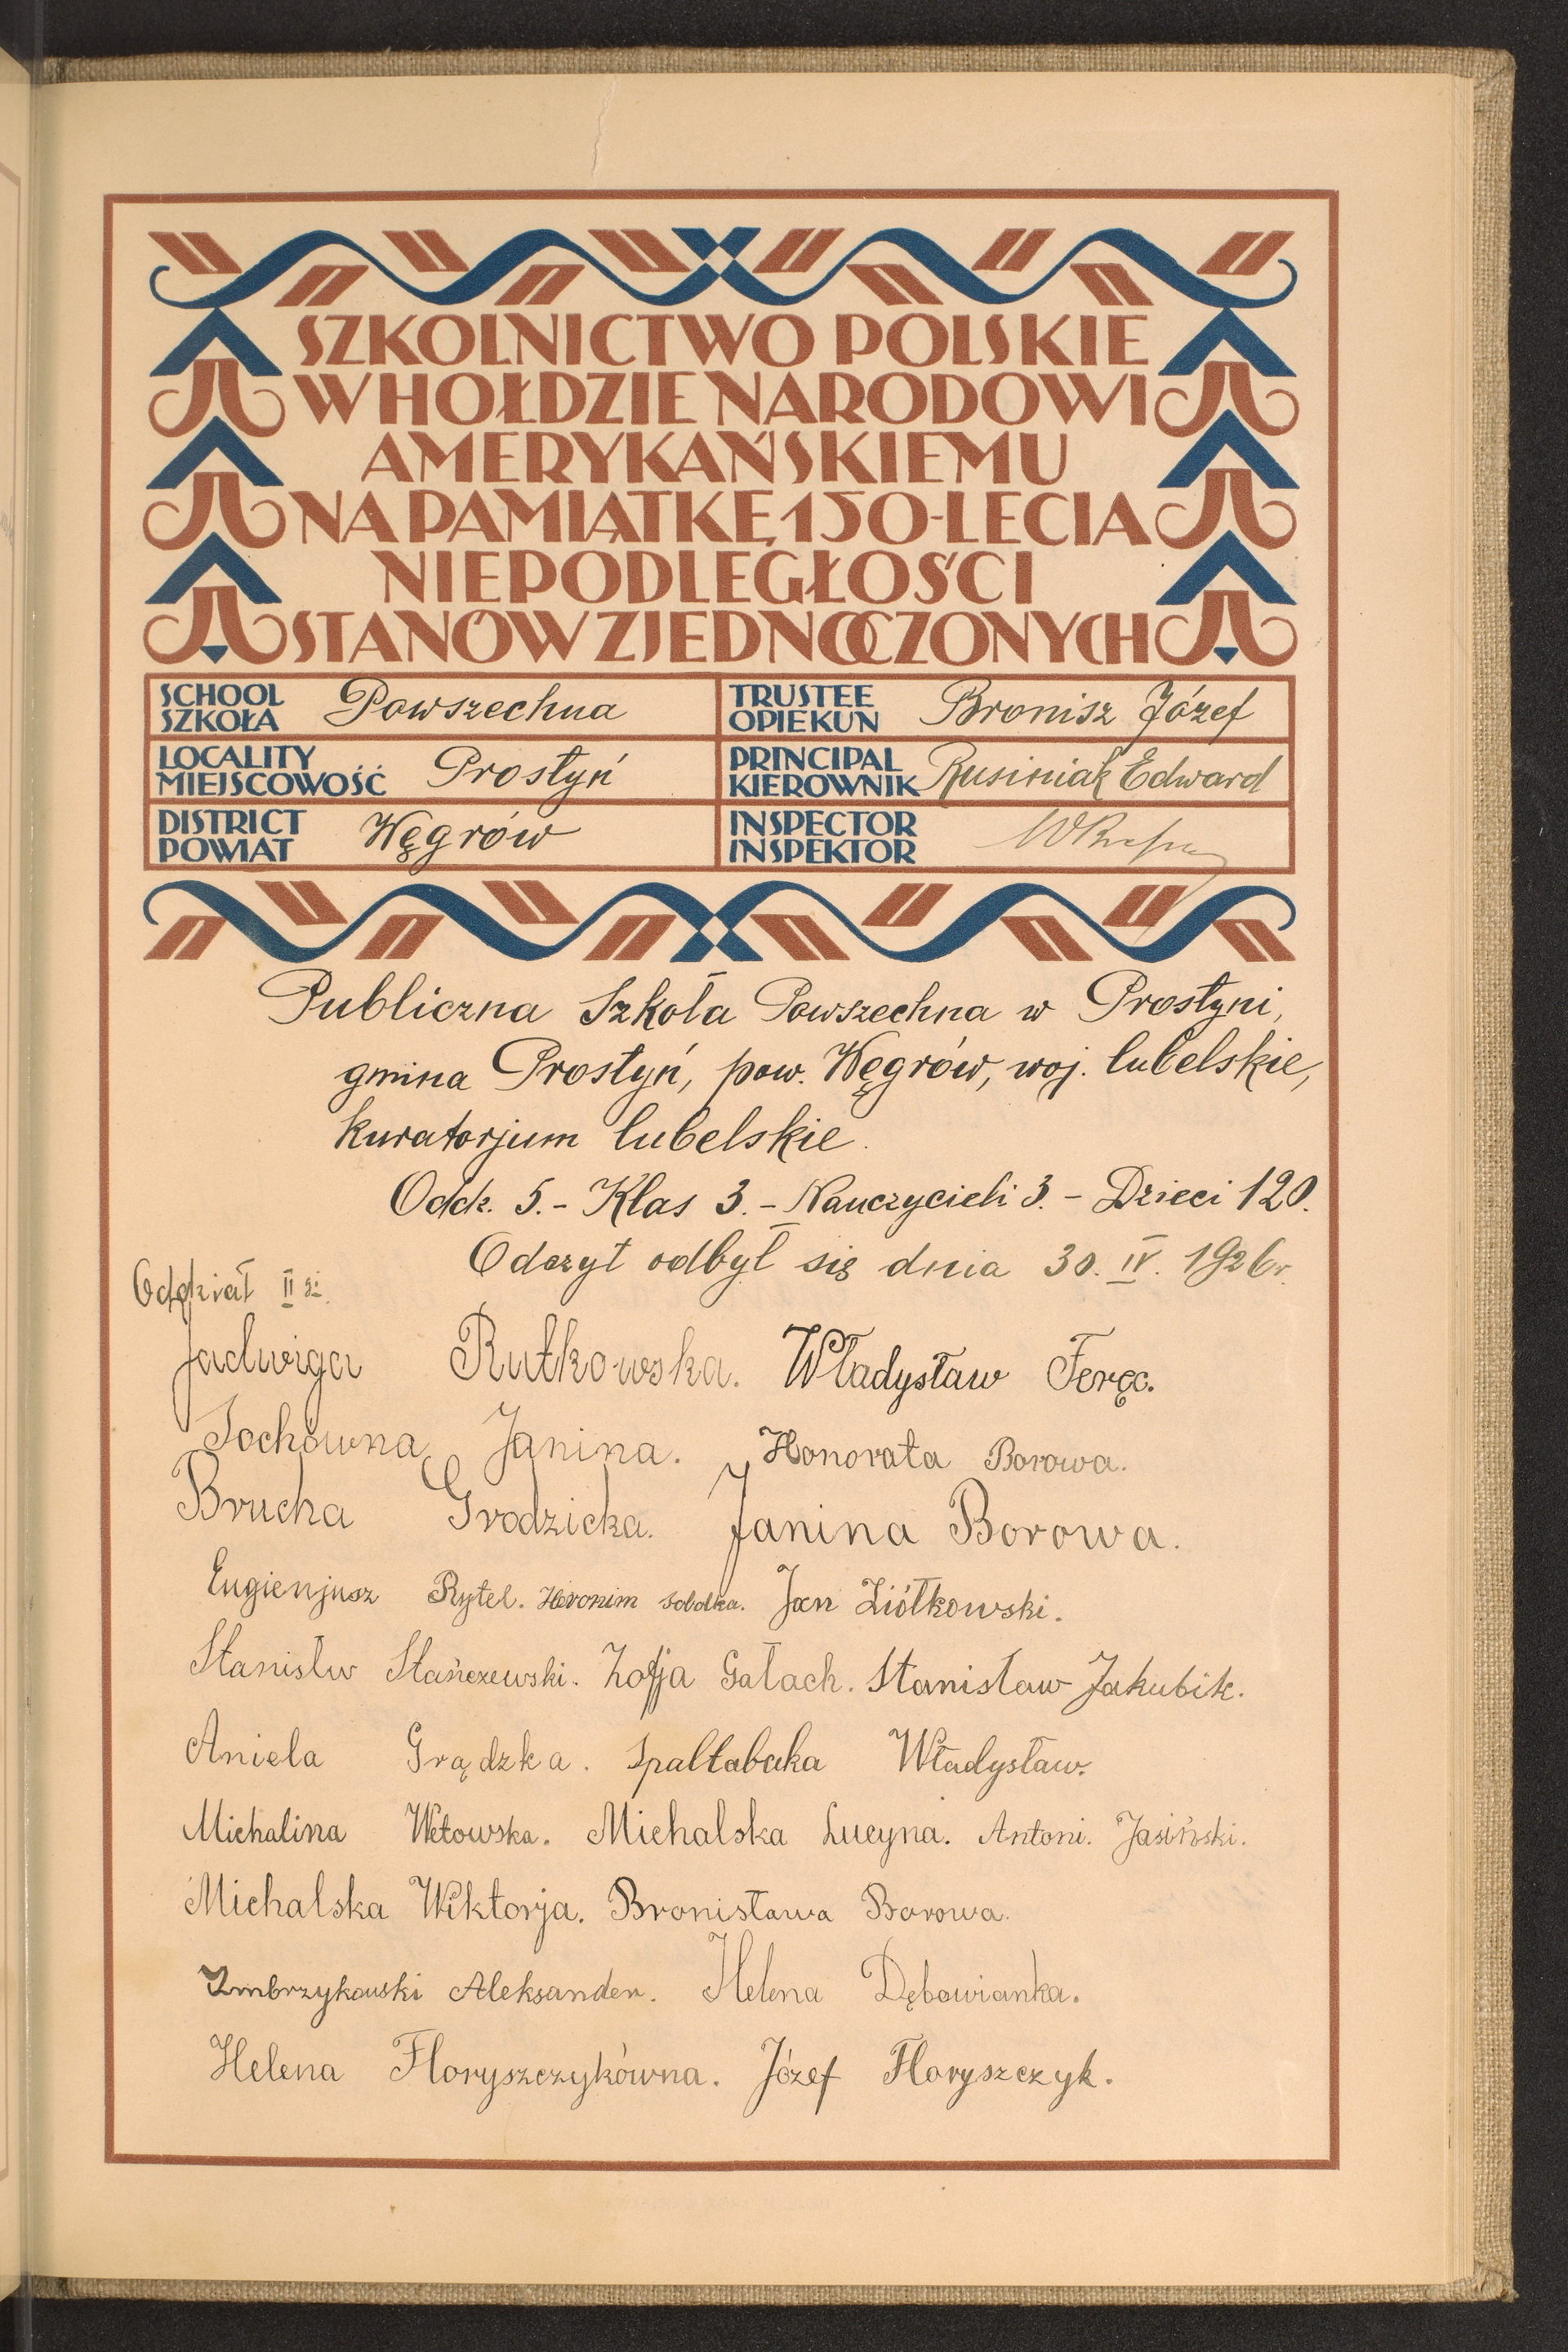 SZKOLNICTWO POLSKIE
W HOŁDZIE NARODOWI
AMERYKAŃSKIEMU
NA PAMIĄTKĘ 150-LECIA
NIEPODLEGŁOŚCI
STANÓW ZJEDNOCZONYCH
SCHOOL
SZKOŁA Powszechna
TRUSTEE
OPIEKUN Bronisz Józef
LOCALITY
MIEJSCOWOŚĆ Prostyń
PRINCIPAL
KIEROWNIK Rusiniak Edward
DISTRICT
POWIAT Węgrów
INSPECTOR
INSPEKTOR
Publiczna Szkoła Powszechna w Prostyni,
gmina Prostyń, pow. Węgrów, woj. lubelskie,
kuratorjum lubelskie.
Oddz. 5.- Klas 3.- Nauczycieli 3.- Dzieci 120.
Odczyt odbył się dnia 30. IV. 1926 r.
Oddział II gi.
Jadwiga Rutkowska. Władysław Feręc.
Sochówna Janina. Honorata Borowa.
Brucha Grodzicka. Janina Borowa.
Eugienjusz Rytel. Hieronim Sobotka. Jan Ziółkowski.
Stanisłw Stańczewski. Zofja Gałach. Stanisław Jakubik.
Aniela Grądzka. Spaltabaka Władysław.
Michalina Wetowska. Michalska Lucyna. Antoni. Jasiński.
Michalska Wiktorja. Bronisława Borowa.
Zmbrzykowski Aleksander. Helena Dębowianka.
Helena Floryszczykówna. Józef Floryszczyk.